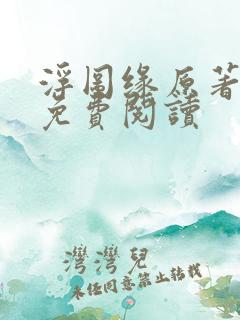 浮图缘原著
免費閱讀
灣灣兒
未经同意禁止转载